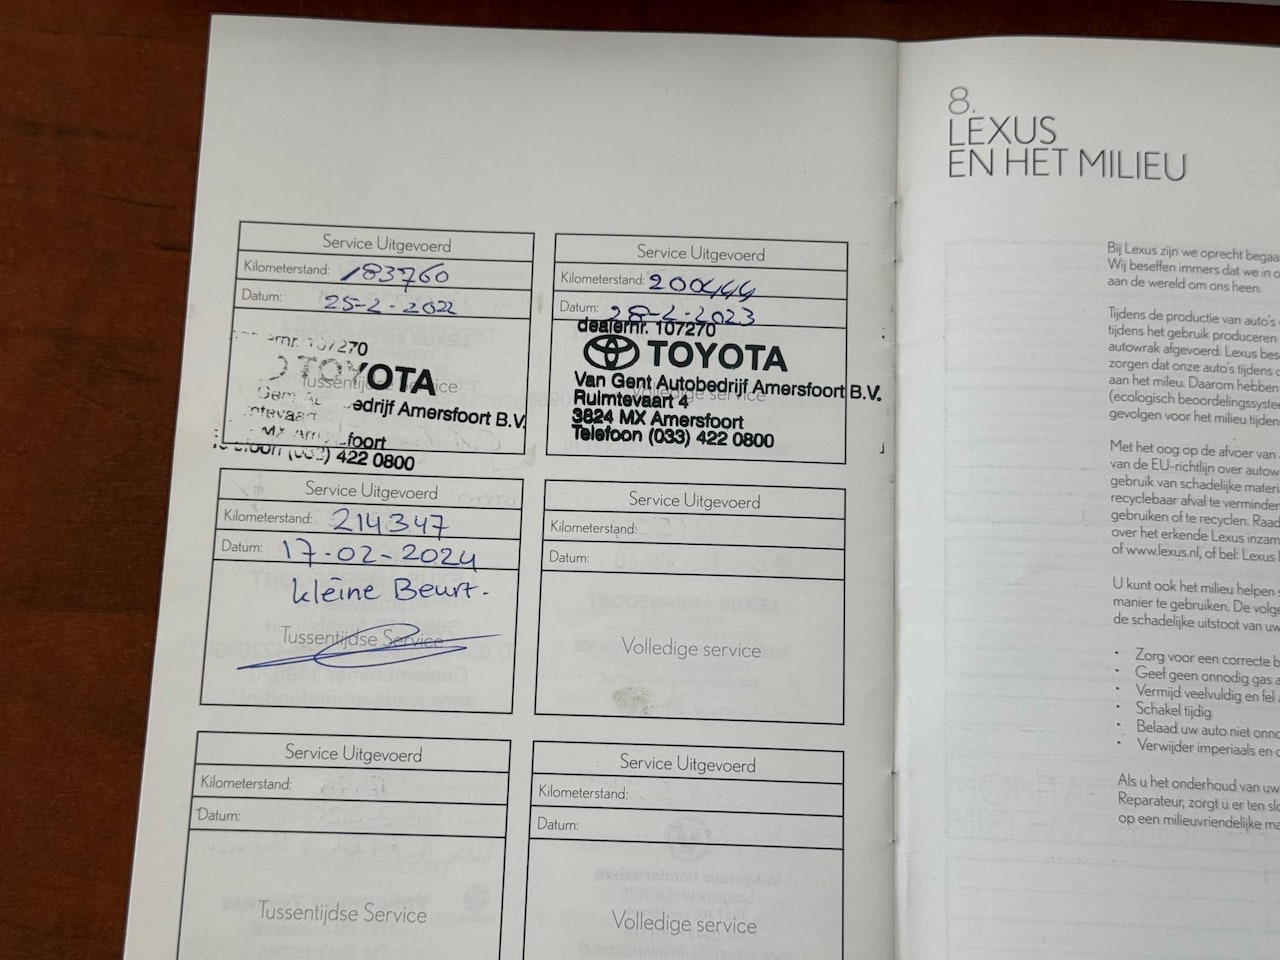 Service Uitgevoerd
Kilometerstand: 183760
Datum: 25-2-2022
107270
TOYOTA
Tussentijdse Service
edrijf Amersfoort B.V.
foort
422 0800
Service Uitgevoerd
Kilometerstand: 200444
Datum: 28-2-2023
dealernr. 107270
TOYOTA
Van Gent Autobedrijf Amersfoort B.V.
Volledige service
Ruimtevaart 4
3824 MX Amersfoort
Telefoon (033) 422 0800
Service Uitgevoerd
Kilometerstand: 214347
Datum: 17-02-2024
kleine Beurt.
Tussentijdse Service
Service Uitgevoerd
Kilometerstand:
Datum:
Volledige service
Service Uitgevoerd
Kilometerstand:
Datum:
Tussentijdse Service
Service Uitgevoerd
Kilometerstand:
Datum:
Volledige service
8.
LEXUS
EN HET MILIEU
Bij Lexus zijn we oprecht begaa
Wij beseffen immers dat we in o
aan de wereld om ons heen.
Tijdens de productie van auto's
tijdens het gebruik produceren
autowrak afgevoerd. Lexus bes
zorgen dat onze auto's tijdens
aan het mileu. Daarom hebben
(ecologisch beoordelingssystee
gevolgen voor het milieu tijden
Met het oog op de afvoer van
van de EU-richtlijn over autow
gebruik van schadelijke materi
recyclebaar afval te verminder
gebruiken of te recyclen. Raad
over het erkende Lexus inzam
of www.lexus.nl, of bel: Lexus
U kunt ook het milieu helpen
manier te gebruiken. De volge
de schadelijke uitstoot van uw
• Zorg voor een correcte b
• Geef geen onnodig gas a
• Vermijd veelvuldig en fel
• Schakel tijdig
• Belaad uw auto niet onno
• Verwijder imperiaals en
Als u het onderhoud van uw
Reparateur, zorgt u er ten slo
op een milieuvriendelijke ma